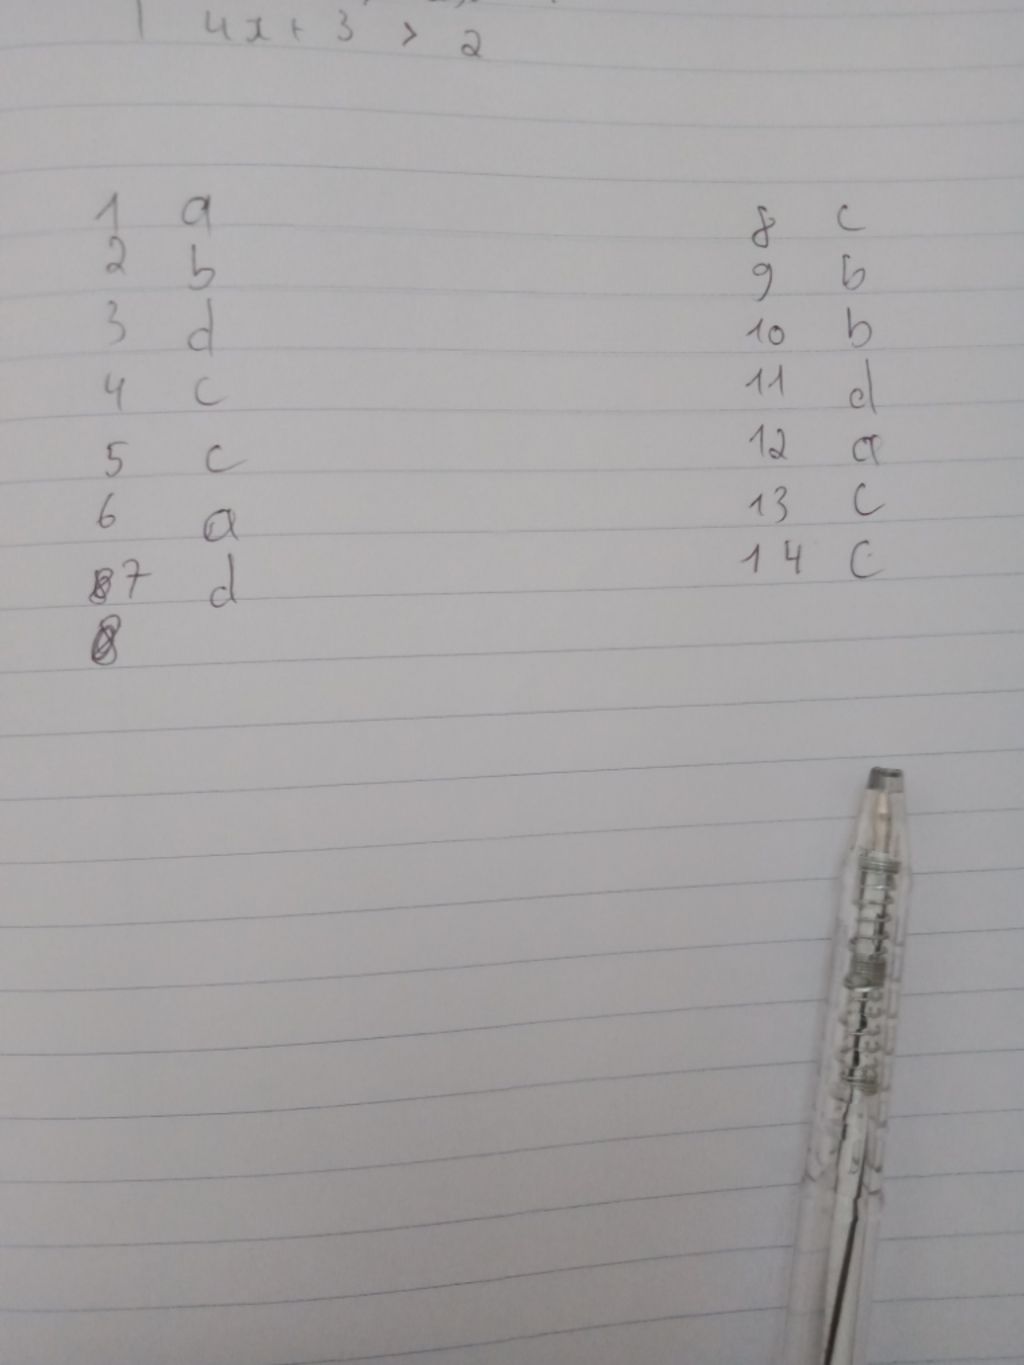 4x + 3 > 2
1 a
2 b
3 d
4 c
5 c
6 a
7 d
8 c
9 b
10 b
11 d
12 a
13 c
14 c